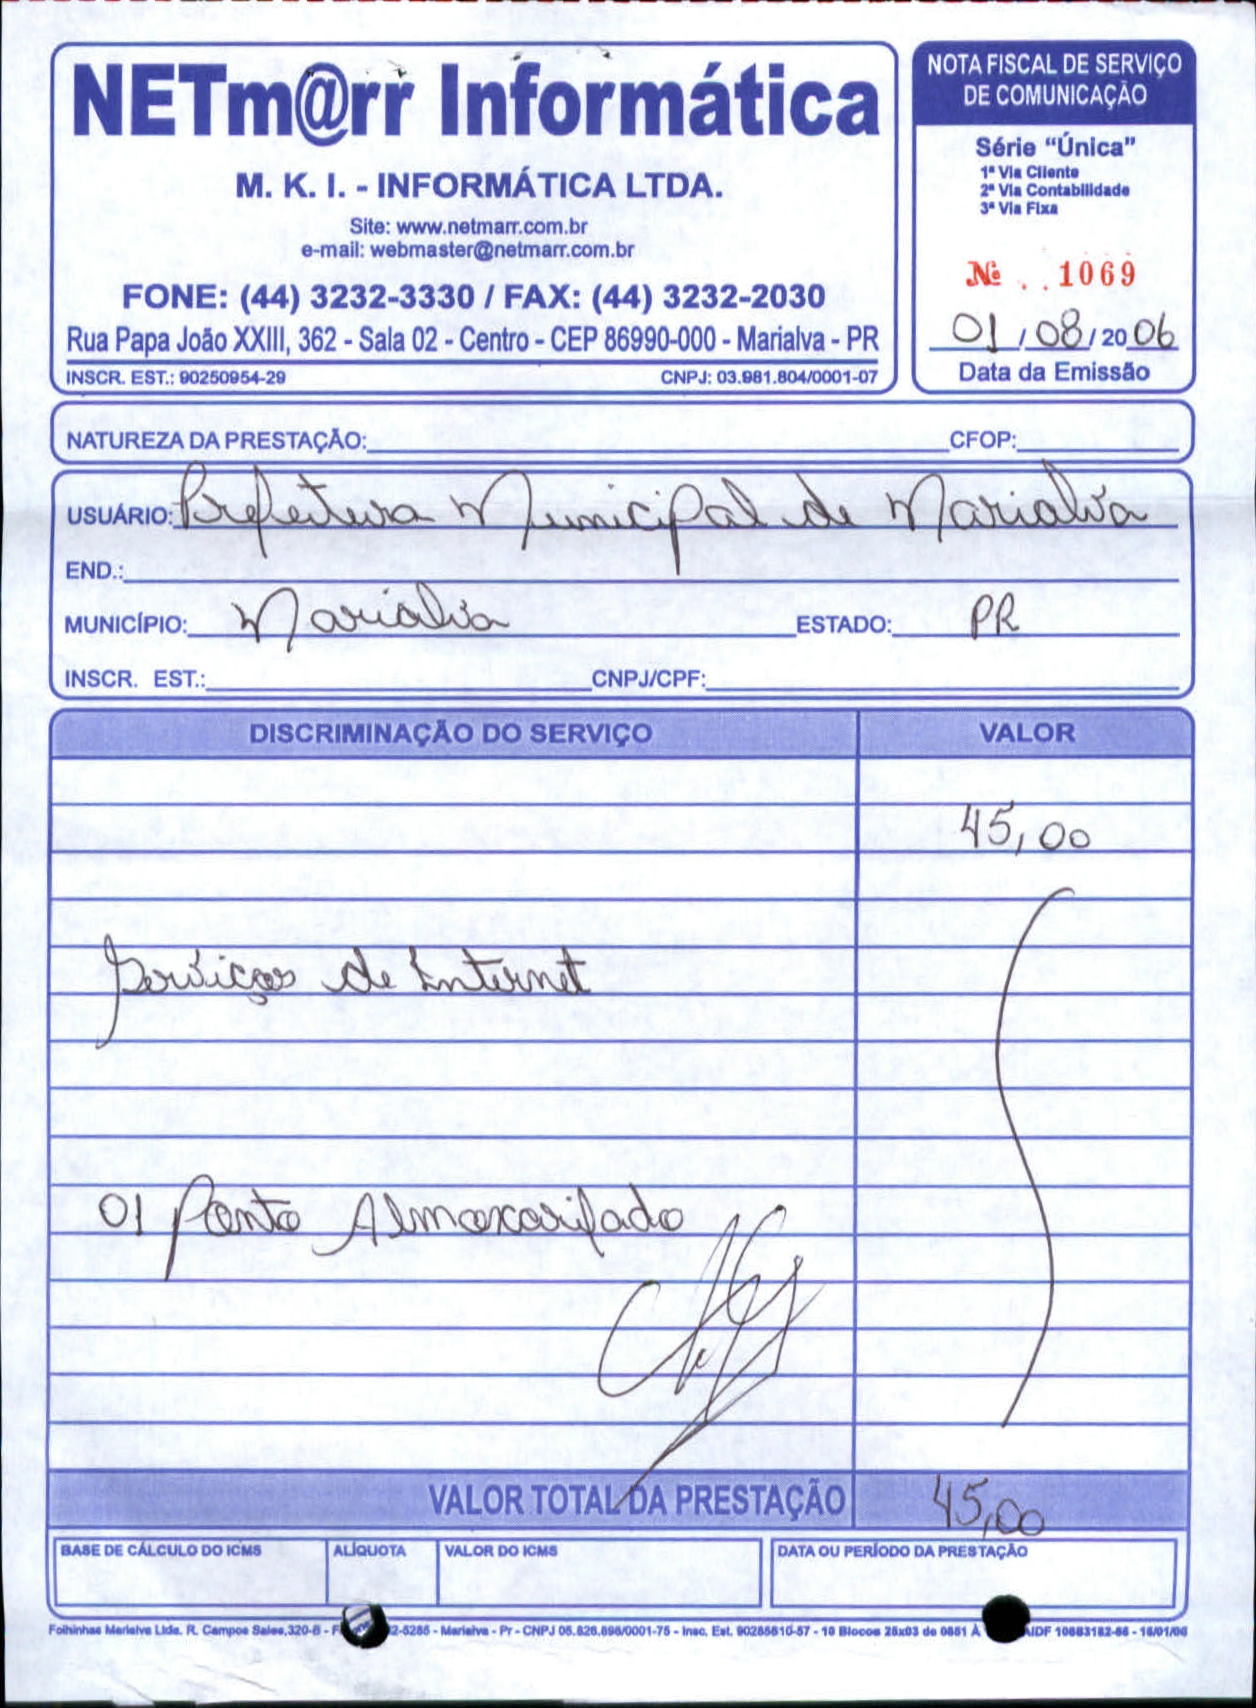 NETm@rr Informática
M. K. I. - INFORMÁTICA LTDA.
Site: www.netmarr.com.br
e-mail: webmaster@netmarr.com.br
FONE: (44) 3232-3330 / FAX: (44) 3232-2030
Rua Papa João XXIII, 362 - Sala 02 - Centro - CEP 86990-000 - Marialva - PR
INSCR. EST.: 90250954-29 CNPJ: 03.981.804/0001-07
NOTA FISCAL DE SERVIÇO
DE COMUNICAÇÃO
Série "Única"
1ª Via Cliente
2ª Via Contabilidade
3ª Via Fixa
Nº 1069
01/08/2006
Data da Emissão
NATUREZA DA PRESTAÇÃO: CFOP:
USUÁRIO: Prefeitura Municipal de Marialva
END.:
MUNICÍPIO: Marialva ESTADO: PR
INSCR. EST.: CNPJ/CPF:
DISCRIMINAÇÃO DO SERVIÇO VALOR
45,00
Serviços de Internet
01 Ponto Almoxarifado
VALOR TOTAL DA PRESTAÇÃO 45,00
BASE DE CÁLCULO DO ICMS ALÍQUOTA VALOR DO ICMS DATA OU PERÍODO DA PRESTAÇÃO
Folhinhas Marialva Ltda. R. Campos Sales, 320-B - 2-5285 - Marialva - Pr - CNPJ 05.826.898/0001-75 - Insc. Est. 90285810-57 - 10 Blocos 25x03 de 0851 À AIDF 10883182-66 - 18/01/06